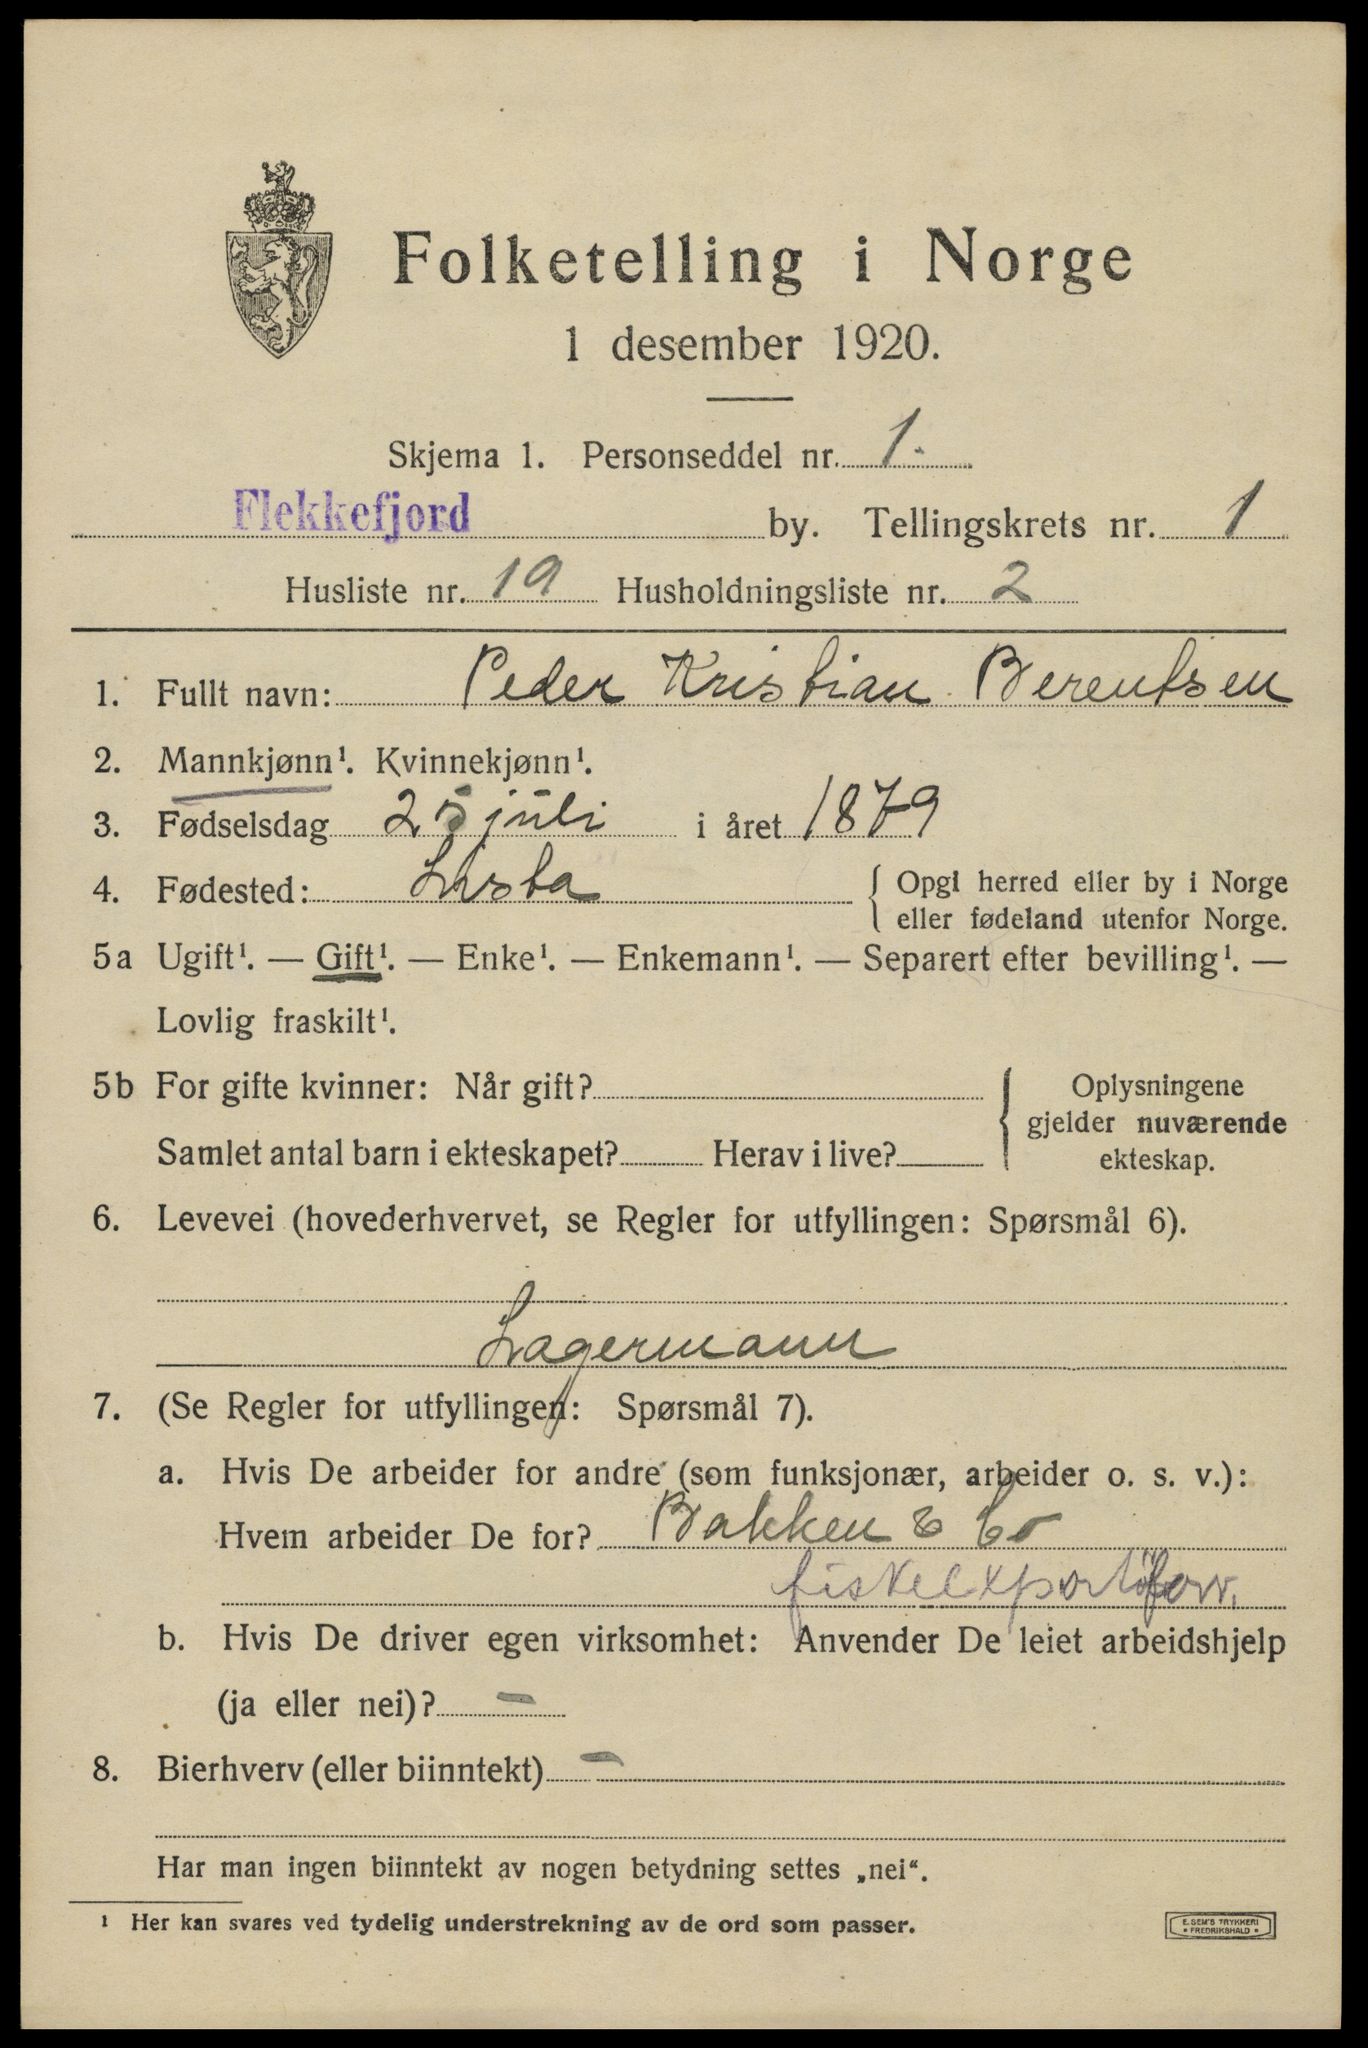 Folketelling i Norge
1 desember 1920.
Skjema 1. Personseddel nr. 1.
Flekkefjord by. Tellingskrets nr. 1
Husliste nr. 19 Husholdningsliste nr. 2
1. Fullt navn: Peder Kristian Berentsen
2. Mannkjønn¹. Kvinnekjønn¹.
3. Fødselsdag 25 juli i året 1879
4. Fødested: Lista { Opgi herred eller by i Norge
eller fødeland utenfor Norge.
5a Ugift¹. — Gift¹. — Enke¹. — Enkemann¹. — Separert efter bevilling¹. —
Lovlig fraskilt¹.
5b For gifte kvinner: Når gift? { Oplysningene
gjelder nuværende
Samlet antal barn i ekteskapet? Herav i live? ekteskap.
6. Levevei (hovederhvervet, se Regler for utfyllingen: Spørsmål 6).
Lagermann
7. (Se Regler for utfyllingen: Spørsmål 7).
a. Hvis De arbeider for andre (som funksjonær, arbeider o. s. v.):
Hvem arbeider De for? Bakken & Co
fiskeexportforr.
b. Hvis De driver egen virksomhet: Anvender De leiet arbeidshjelp
(ja eller nei)? —
8. Bierhverv (eller biinntekt) —
Har man ingen biinntekt av nogen betydning settes „nei“.
¹ Her kan svares ved tydelig understrekning av de ord som passer.
E. SEM'S TRYKKERI
• FREDRIKSHALD •